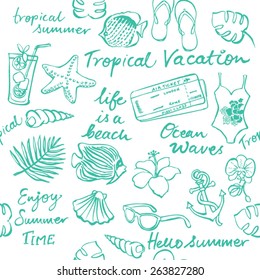 tropical
summer
Tropical Vacation
AIR TICKET
life
is a
beach
Ocean
Waves
Tropical
Enjoy
Summer
TIME
Hello summer
shutterstock
www.shutterstock.com · 263827280